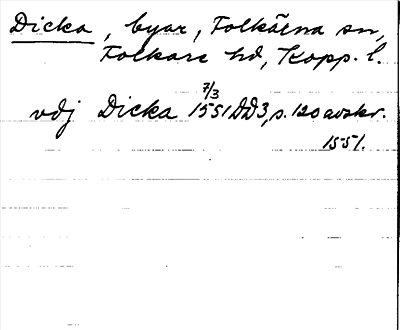 Dicka, byar, Folkärna sn,
Folkare hd, Kopp. l.
vdj Dicka 7/3 1551 DD3, s. 120 avskr.
1551.